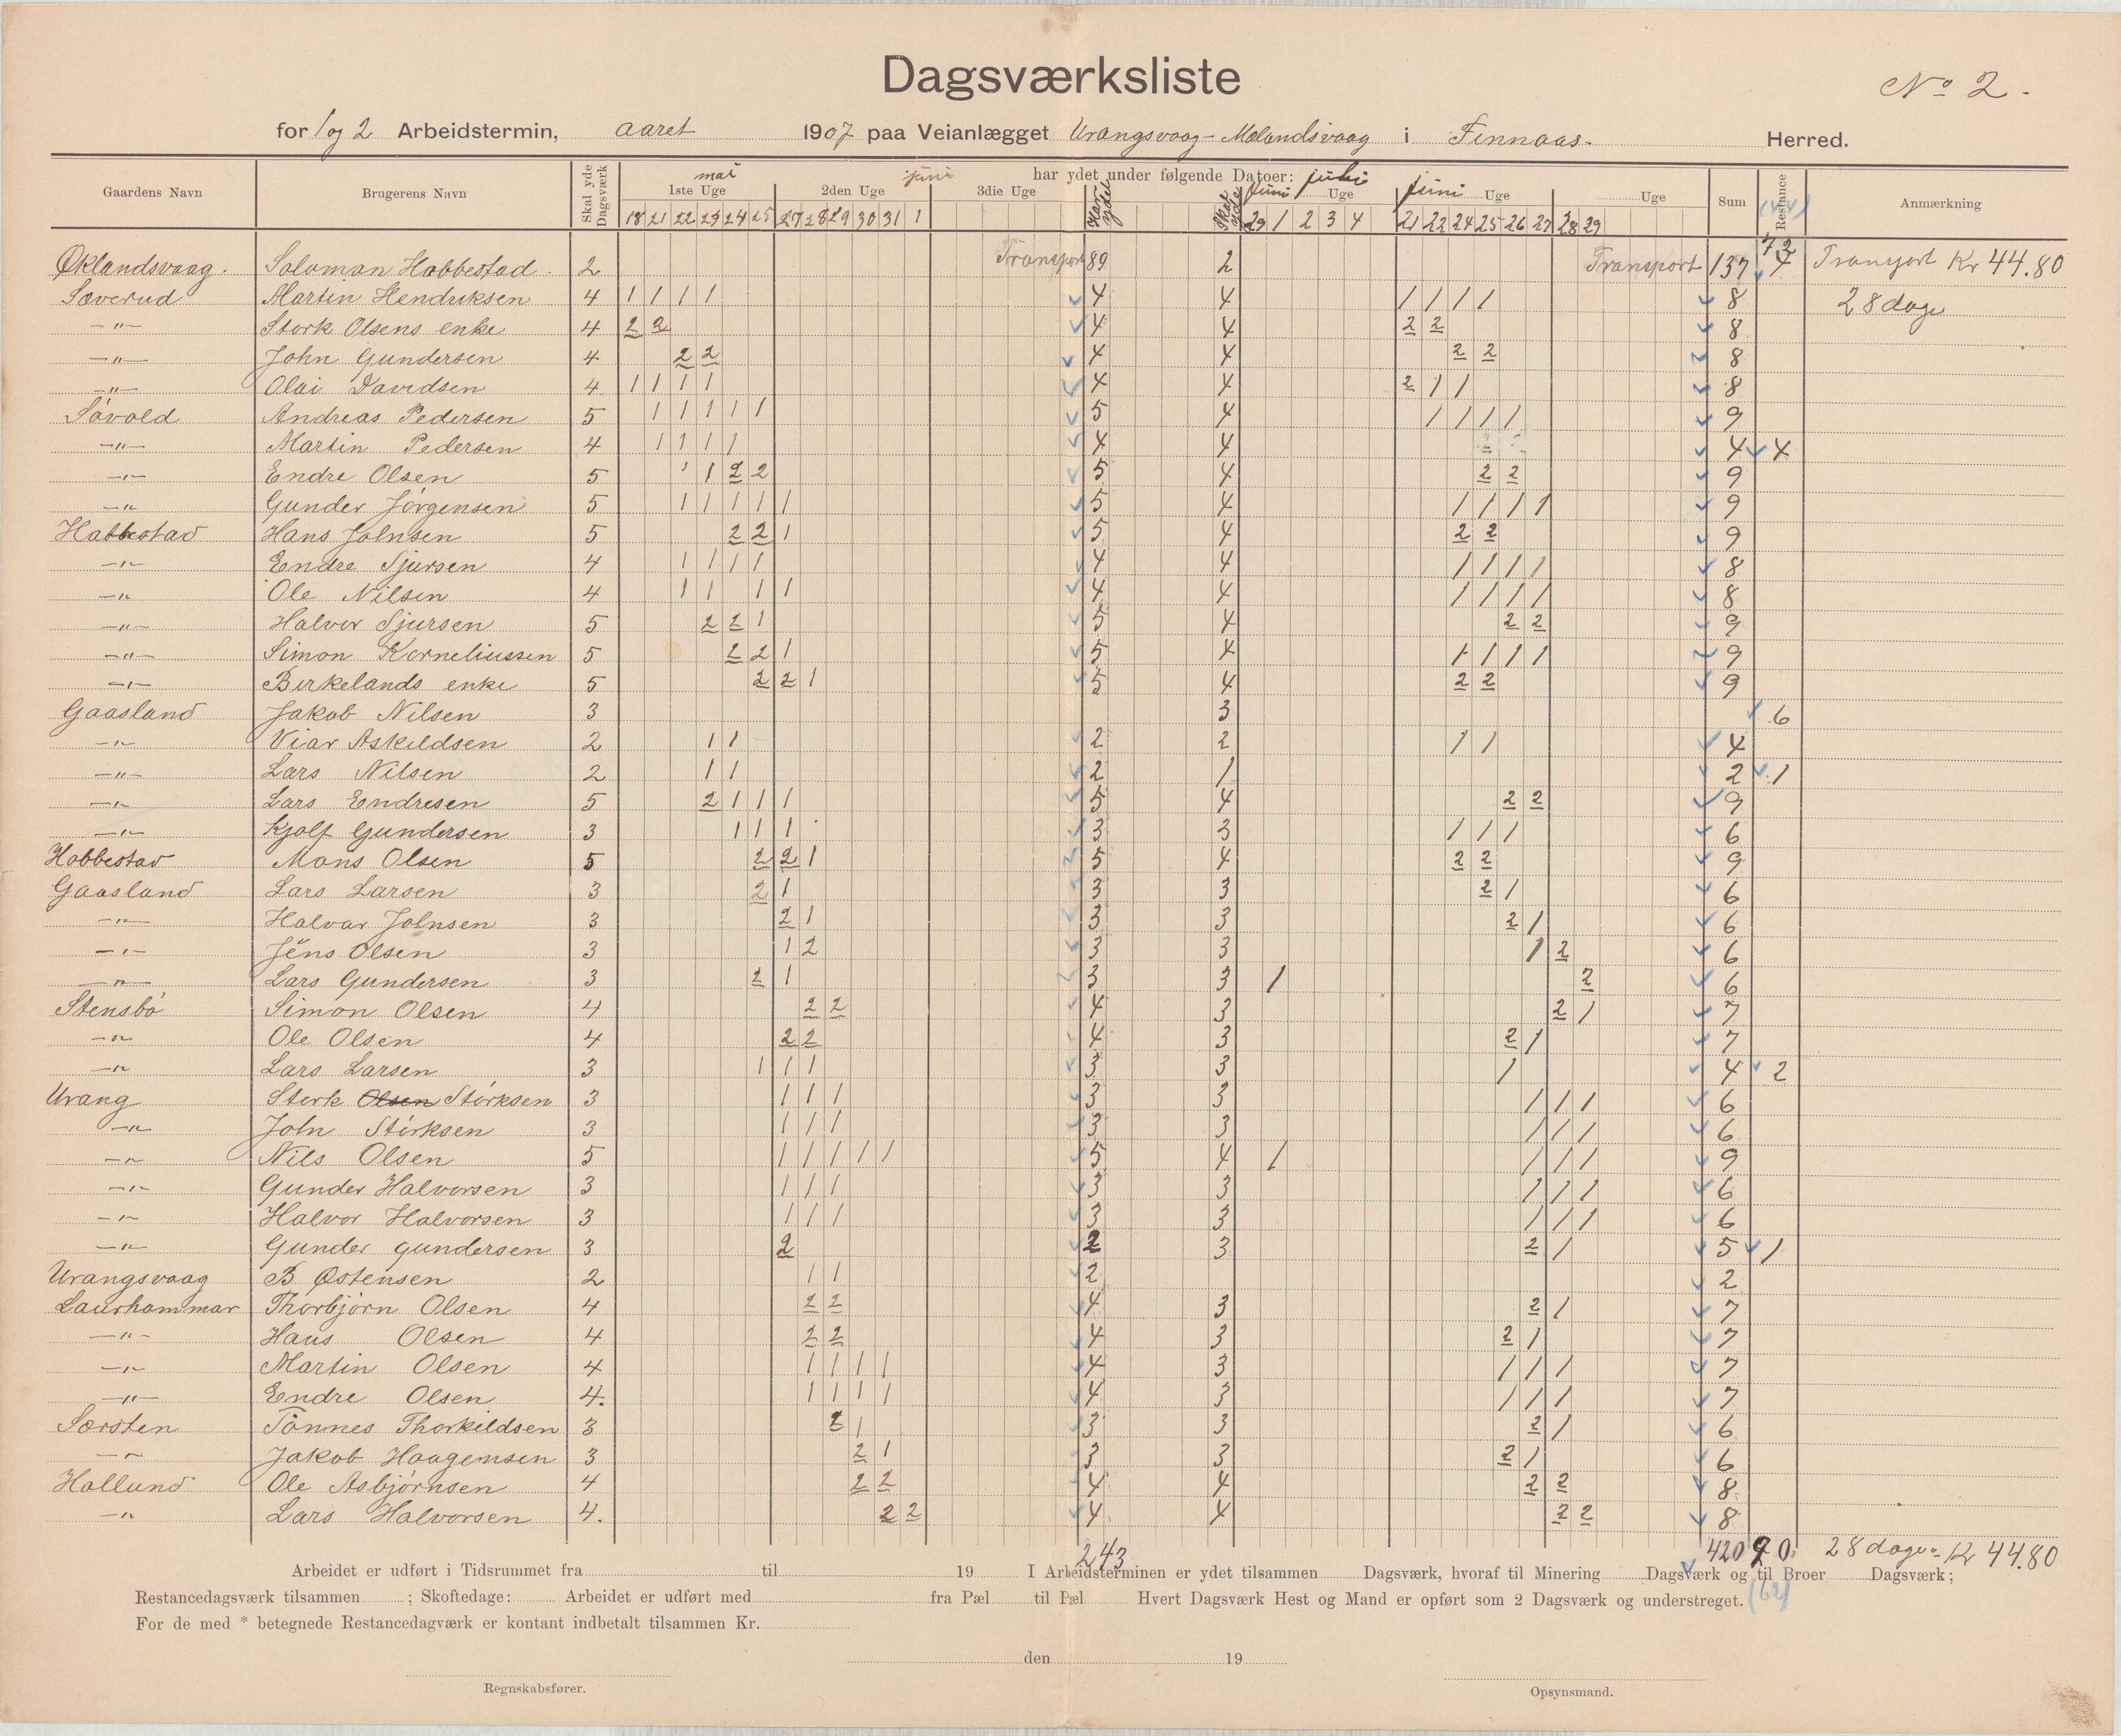 Dagsværksliste
No 2.
for 1 og 2 Arbeidstermin, aaret 1907 paa Veianlægget Urangsvaag - Mælandsvaag i Finnaas. Herred.
Gaardens Navn | Brugerens Navn | Skal yde Dagsværk | har ydet under følgende Datoer: | Sum | Restance | Anmærkning
mai juni juli juni
1ste Uge 2den Uge 3die Uge Har ydet Skal yde Juni Uge Uge Uge
18 21 22 23 24 25 27 28 29 30 31 1 29 1 2 3 4 21 22 24 25 26 27 28 29
Øklandsvaag. Salomon Habbestad. 2 Transport 89 2 Transport 137 Transport Kr 44.80
Sæverud Martin Hendriksen 4 1 1 1 1 4 4 1 1 1 1 8 28 dage
—"— Stork Olsens enke 4 2 2 4 4 2 2 8
—"— John Gundersen 4 2 2 4 4 2 2 8
—"— Olai Davidsen 4 1 1 1 1 4 4 2 1 1 8
Såvold Andreas Pedersen 5 1 1 1 1 1 5 4 1 1 1 1 9
—"— Martin Pedersen 4 1 1 1 1 4 4 4 4
—"— Endre Olsen 5 1 1 2 2 5 4 2 2 9
—"— Gunder Jörgensen 5 1 1 1 1 1 5 4 1 1 1 1 9
Habbestad Hans Johnsen 5 2 2 1 5 4 2 2 9
—"— Endre Sjursen 4 1 1 1 1 4 4 1 1 1 1 8
—"— Ole Nilsen 4 1 1 1 1 4 4 1 1 1 1 8
—"— Halvor Sjursen 5 2 2 1 5 4 2 2 9
—"— Simon Korneliussen 5 2 2 1 5 4 1 1 1 1 9
—"— Birkelands enke 5 2 2 1 5 4 2 2 9
Gaasland Jakob Nilsen 3 3 6
—"— Viar Askildsen 2 1 1 2 2 1 1 4
—"— Lars Nilsen 2 1 1 2 1 2 1
—"— Lars Endresen 5 2 1 1 1 5 4 2 2 9
—"— Kjolf Gundersen 3 1 1 1 3 3 1 1 1 6
Habbestad Mons Olsen 5 2 2 1 5 4 2 2 9
Gaasland Lars Larsen 3 2 1 3 3 2 1 6
—"— Halvar Johnsen 3 2 1 3 3 2 1 6
—"— Jens Olsen 3 1 2 3 3 1 2 6
—"— Lars Gundersen 3 2 1 3 3 1 2 6
Stensbö Simon Olsen 4 2 2 4 3 2 1 7
—"— Ole Olsen 4 2 2 4 3 2 1 7
—"— Lars Larsen 3 1 1 1 3 3 1 4 2
Urang Stork Olsen Störksen 3 1 1 1 3 3 1 1 1 6
—"— John Störksen 3 1 1 1 3 3 1 1 1 6
—"— Nils Olsen 5 1 1 1 1 1 5 4 1 1 1 1 9
—"— Gunder Halvorsen 3 1 1 1 3 3 1 1 1 6
—"— Halvor Halvorsen 3 1 1 1 3 3 1 1 1 6
—"— Gunder gundersen 3 2 2 3 2 1 5 1
Urangsvaag B Østensen 2 1 1 2 2
Laurhammar Thorbjörn Olsen 4 2 2 4 3 2 1 7
—"— Hans Olsen 4 2 2 4 3 2 1 7
—"— Martin Olsen 4 1 1 1 1 4 3 1 1 1 7
—"— Endre Olsen 4. 1 1 1 1 4 3 1 1 1 7
Særsten Tönnes Thorkildsen 3 2 1 3 3 2 1 6
—"— Jakob Haagensen 3 2 1 3 3 2 1 6
Hallund Ole Asbjörnsen 4 2 2 4 4 2 2 8
—"— Lars Halvorsen 4. 2 2 4 4 2 2 8
243 420 28 dage = Kr 44.80
Arbeidet er udført i Tidsrummet fra til 19 I Arbeidsterminen er ydet tilsammen Dagsværk, hvoraf til Minering Dagsværk og til Broer Dagsværk;
Restancedagsværk tilsammen ; Skoftedage: Arbeidet er udført med fra Pæl til Pæl Hvert Dagsværk Hest og Mand er opført som 2 Dagsværk og understreget. (62)
For de med * betegnede Restancedagværk er kontant indbetalt tilsammen Kr.
den 19
Regnskabsfører. Opsynsmand.